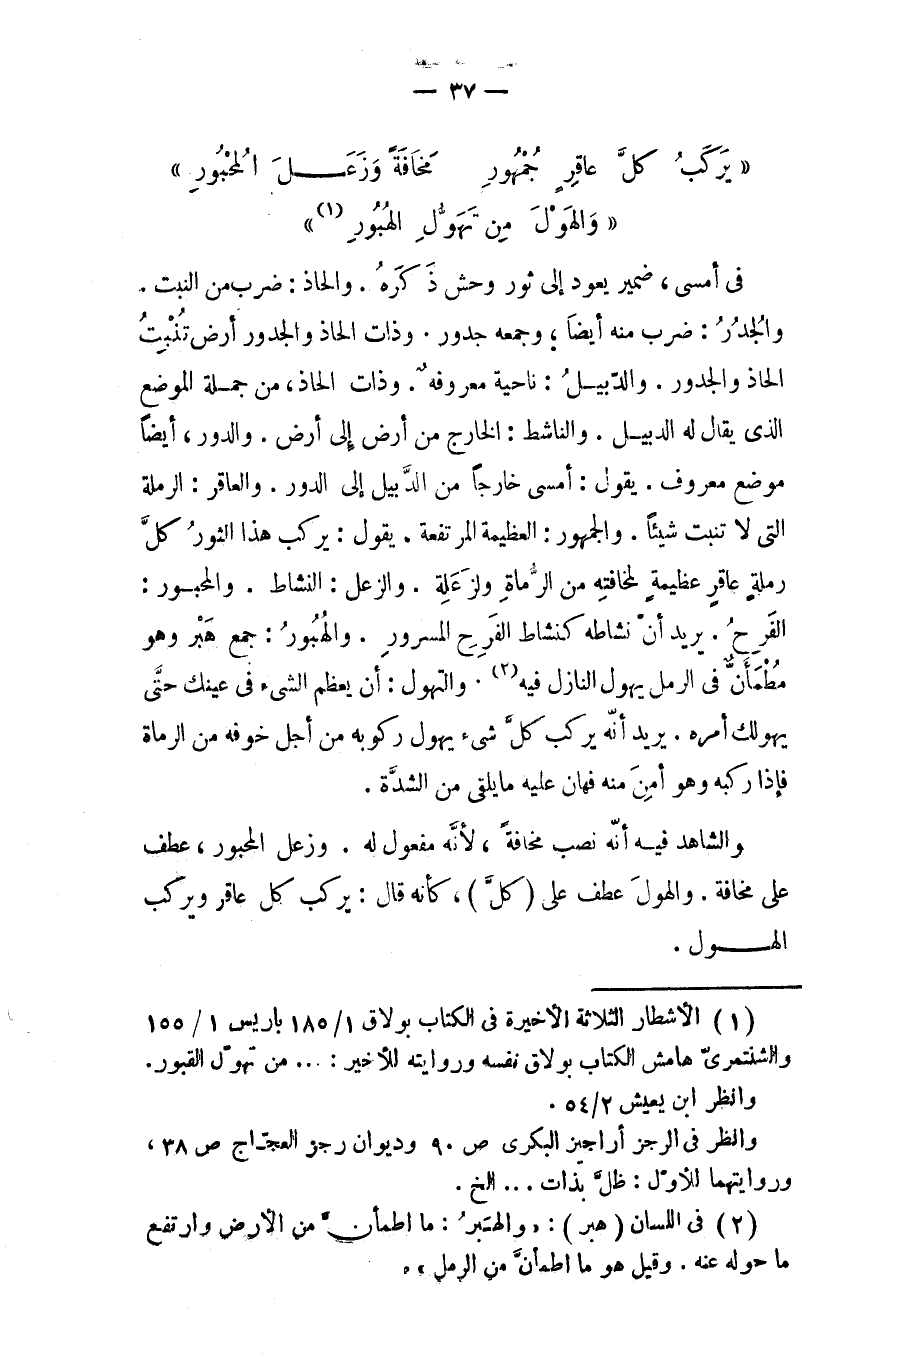 — ٣٧ —
« يَركَبُ كلَّ عاقِرٍ جُمْهُورِ مَخَافَةً وَزَعَلَ المَحْبُورِ »
« وَالهَوْلَ مِن تَهَوُّلِ الهُبُورِ (١) »
فى أمسى ، ضمير يعود إلى ثور وحش ذَكَرَهُ . والحاذ : ضرب من النبت .
والجُدُرُ : ضرب منه أيضاً ؛ وجمعه جدور . وذات الحاذ والجدور أرض تُنْبِتُ
الحاذ والجدور . والدّبيلُ : ناحية معروفه . وذات الحاذ ، من جملة الموضع
الذى يقال له الدبيل . والناشط : الخارج من أرض إلى أرض . والدور ، أيضاً
موضع معروف . يقول : أمسى خارجاً من الدَّبيل إلى الدور . والعاقر : الرملة
التى لا تنبت شيئاً . والجمهور : العظيمة المرتفعة . يقول : يركب هذا الثورُ كلَّ
رملةٍ عاقرٍ عظيمةٍ لمخافتِه من الرُّماةِ ولزَعَلِة . والزعل : النشاط . والمحبور :
الفَرِحُ . يريد أنْ نشاطه كنشاط الفَرِحِ المسرورِ . والهُبُورُ : جمع هَبْر وهو
مُطْمَأنٌّ فى الرمل يهول النازل فيه (٢) . والتهول : أن يعظم الشىء فى عينك حتَّى
يهولك أمره . يريد أنّه يركب كلَّ شىء يهول ركوبه من أجل خوفه من الرماة
فإذا ركبه وهو أمِنَ منه فهان عليه مايلقى من الشدَّة .
والشاهد فيه أنّه نصب مخافةً ، لأنَّه مفعول له . وزعل المحبور ، عطف
على مخافة . والهولَ عطف على ( كلَّ ) ، كأنه قال : يركب كل عاقر ويركب
الهول .
(١) الأشطار الثلاثة الأخيرة فى الكتاب بولاق ١٨٥/١ باريس ١ / ١٥٥
والشنتمرىّ هامش الكتاب بولاق نفسه وروايته للأخير : ... من تهوّل القبور .
وانظر ابن يعيش ٥٤/٢ .
وانظر فى الرجز أراجيز البكرى ص ٩٠ وديوان رجز العجّاج ص ٣٨ ،
وروايتهما للأوّل : ظلَّ بذات ... الخ .
(٢) فى اللسان ( هبر ) : « والهَبرُ : ما اطمأنَّ من الأرض وارتفع
ما حوله عنه . وقيل هو ما اطمأنَّ من الرمل » .